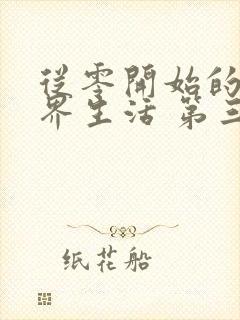 從零開始的
界生活 第三
纸花船